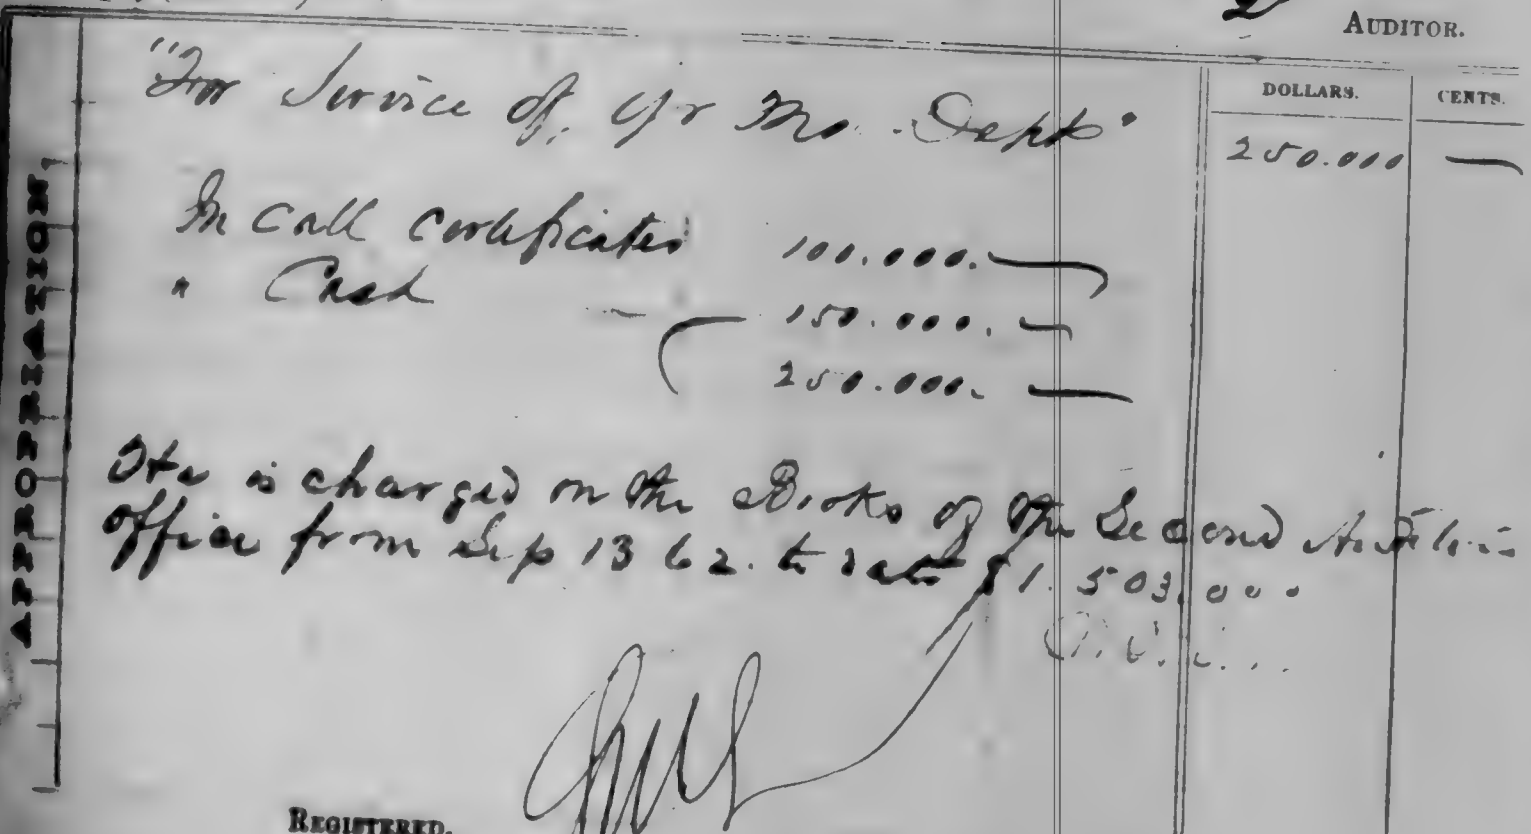 AUDITOR.
DOLLARS. CENTS.
"For Service of Qr Mr Dept"
250.000 —
APPROPRIATION.
In Call certificates 100.000. —
" Cash — 150.000. —
250.000. —
is charged on the Books of the Second Auditors
office from Sep 13 62. to date $1.503.000
REGISTERED.